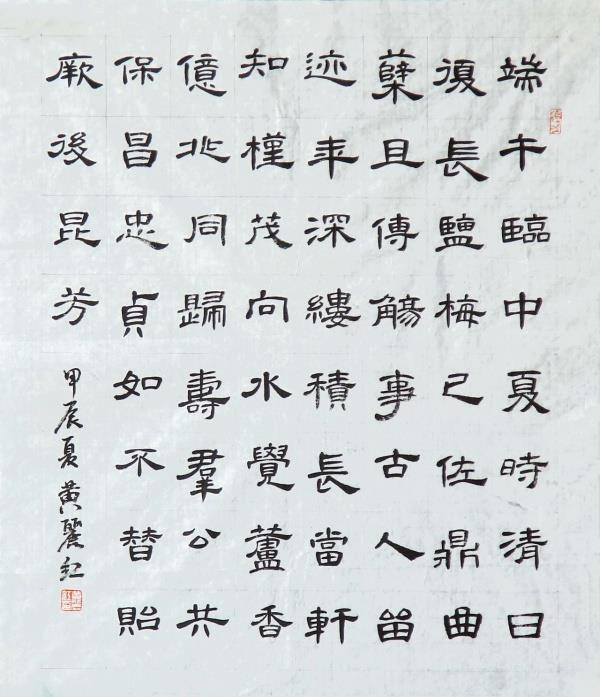 端午臨中夏時清日
復長鹽梅已佐鼎曲
蘖且傳觴事古人留
迹年深縷積長當軒
知槿茂向水覺蘆香
億兆同歸壽羣公共
保昌忠貞如不替貽
厥後昆芳
甲辰夏黃麗紅